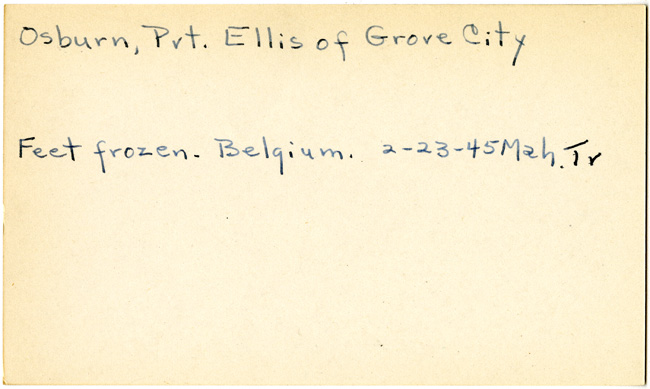 Osburn, Pvt. Ellis of Grove City
Feet frozen. Belgium. 2-23-45 Mah. Tr